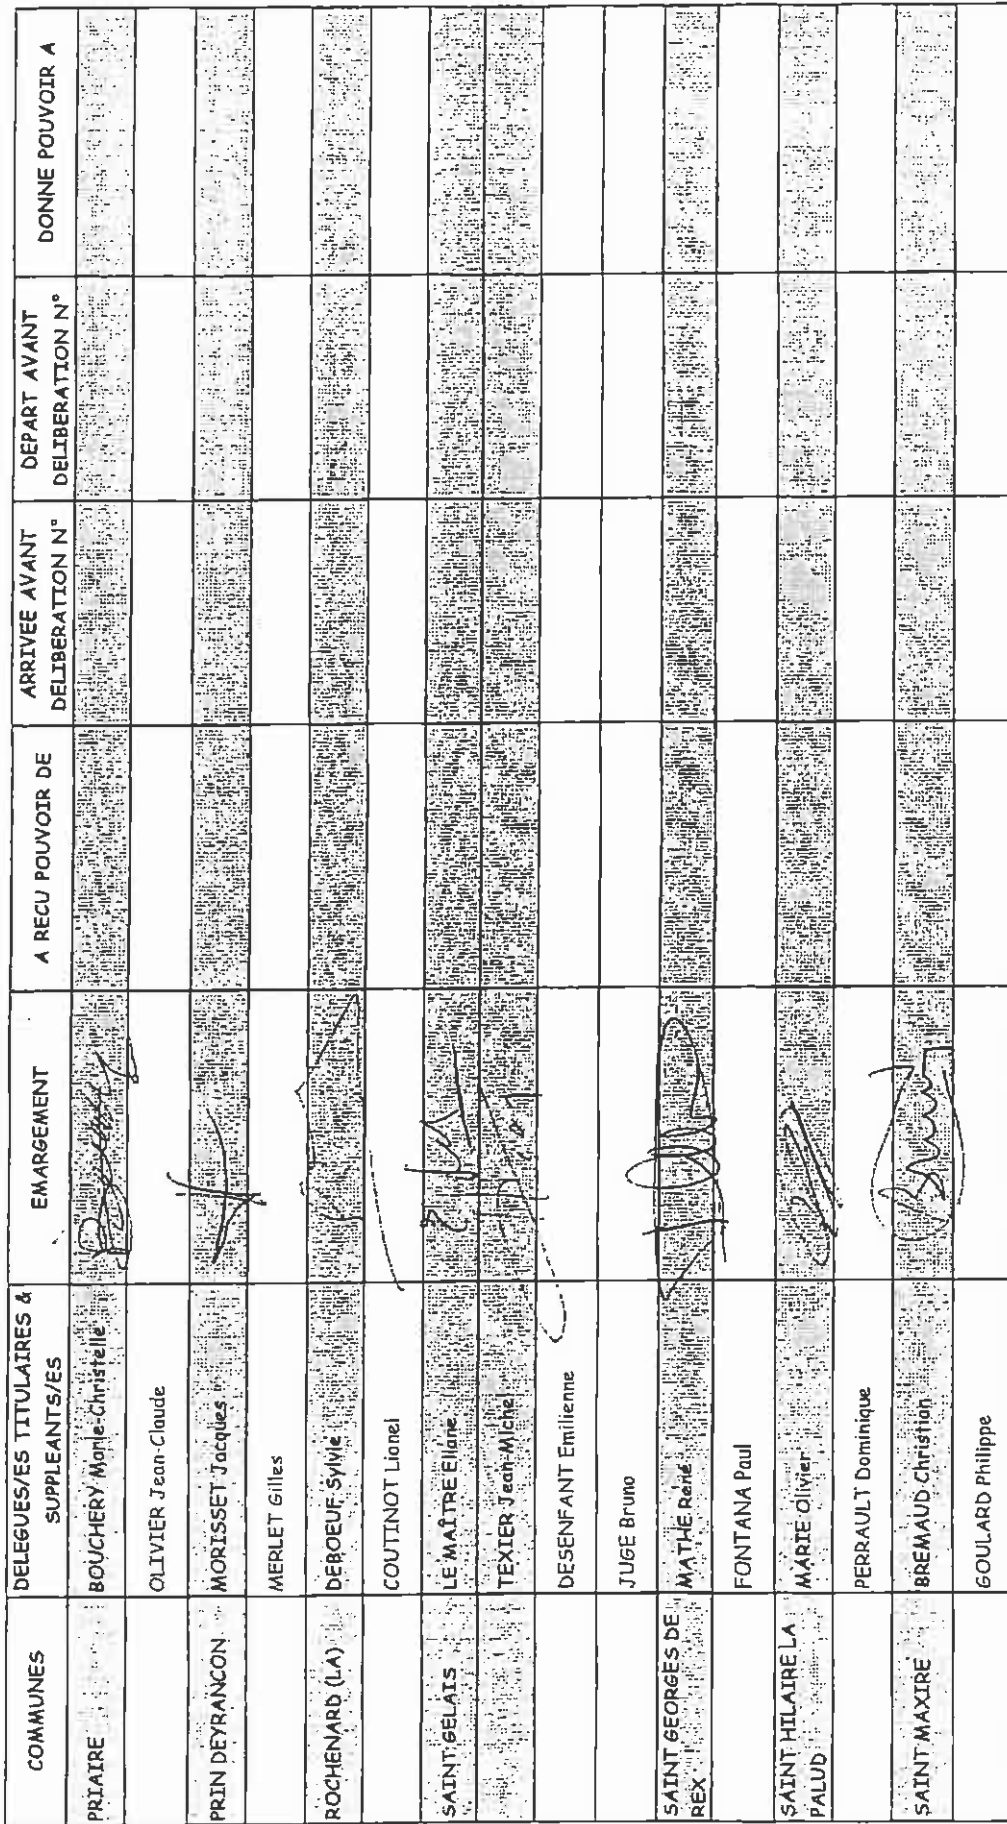 COMMUNES DELEGUES/ES TITULAIRES & SUPPLEANTS/ES EMARGEMENT A RECU POUVOIR DE ARRIVEE AVANT DELIBERATION N° DEPART AVANT DELIBERATION N° DONNE POUVOIR A
PRIAIRE BOUCHERY Marie-Christelle
OLIVIER Jean-Claude
PRIN DEYRANCON MORISSET Jacques
MERLET Gilles
ROCHENARD (LA) DEBOEUF Sylvie
COUTINOT Lionel
SAINT GELAIS LE MAÎTRE Eliane
TEXIER Jean-Michel
DESENFANT Emilienne
JUGE Bruno
SAINT GEORGES DE REX MATHE René
FONTANA Paul
SAINT HILAIRE LA PALUD MARIE Olivier
PERRAULT Dominique
SAINT MAXIRE BREMAUD Christian
GOULARD Philippe